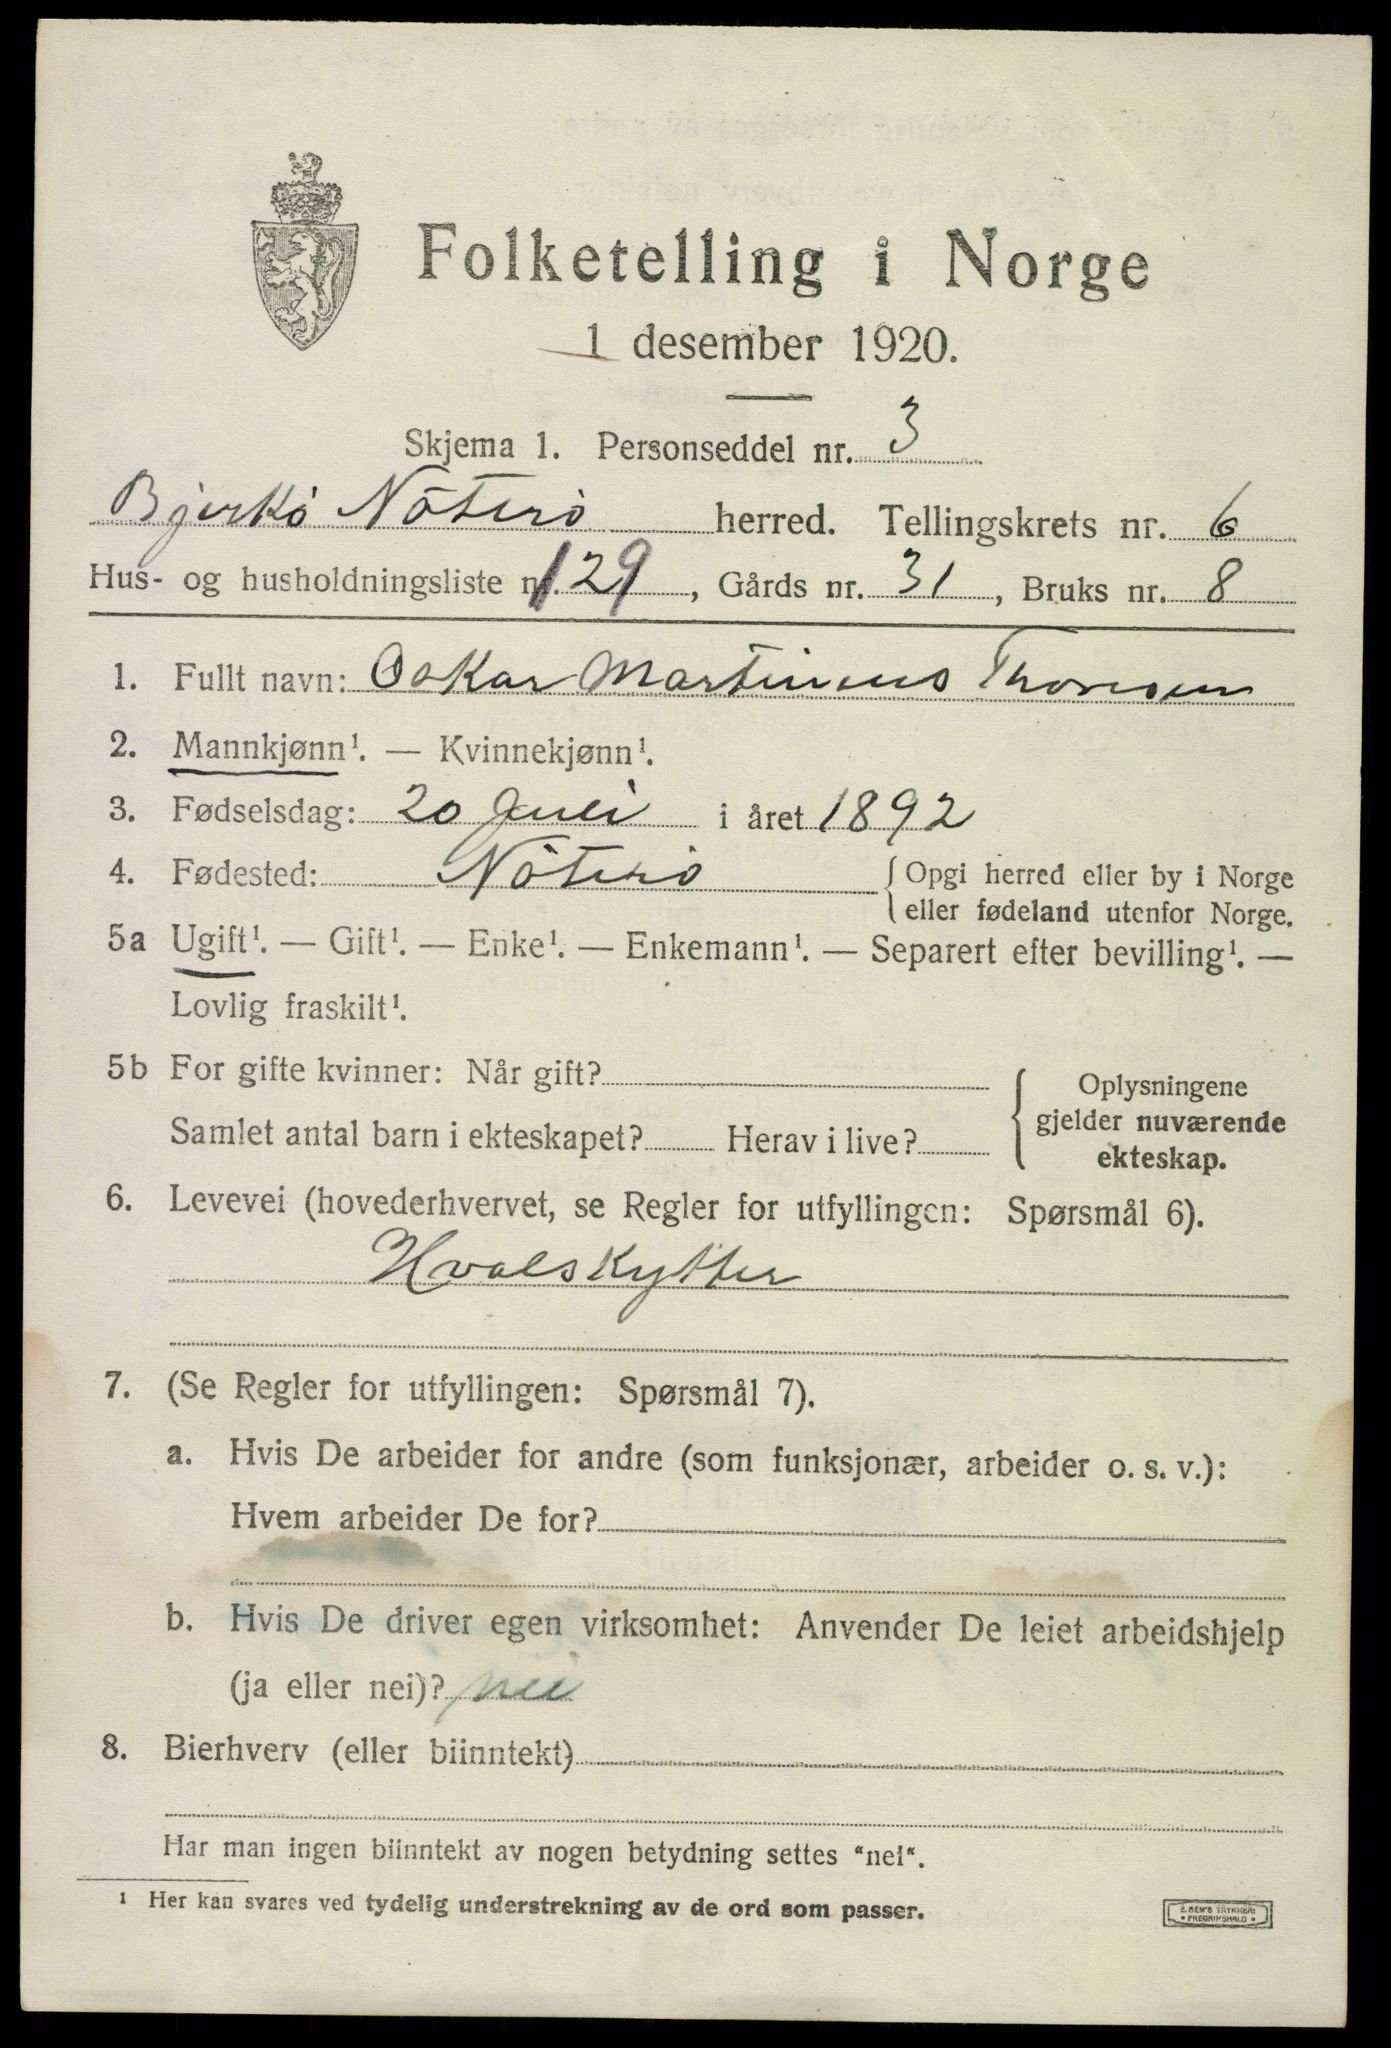 Folketelling i Norge
1 desember 1920.
Skjema 1. Personseddel nr. 3
Bjerkö Nöterö herred. Tellingskrets nr. 6
Hus- og husholdningsliste nr. 129, Gårds nr. 31, Bruks nr. 8
1. Fullt navn: Oskar Martinius Thoresen
2. Mannkjønn¹. — Kvinnekjønn¹.
3. Fødselsdag: 20 Juli i året 1892
4. Fødested: Nöterö { Opgi herred eller by i Norge
eller fødeland utenfor Norge.
5a Ugift¹. — Gift¹. — Enke¹. — Enkemann¹. — Separert efter bevilling¹. —
Lovlig fraskilt¹.
5b For gifte kvinner: Når gift?
Samlet antal barn i ekteskapet? Herav i live?
Oplysningene
gjelder nuværende
ekteskap.
6. Levevei (hovederhvervet, se Regler for utfyllingen: Spørsmål 6).
Hvalskytter
7. (Se Regler for utfyllingen: Spørsmål 7).
a. Hvis De arbeider for andre (som funksjonær, arbeider o. s. v.):
Hvem arbeider De for?
b. Hvis De driver egen virksomhet: Anvender De leiet arbeidshjelp
(ja eller nei)? nei
8. Bierhverv (eller biinntekt)
Har man ingen biinntekt av nogen betydning settes "nei".
¹ Her kan svares ved tydelig understrekning av de ord som passer.
E. SEM'S TRYKKERI
• FREDRIKSHALD •